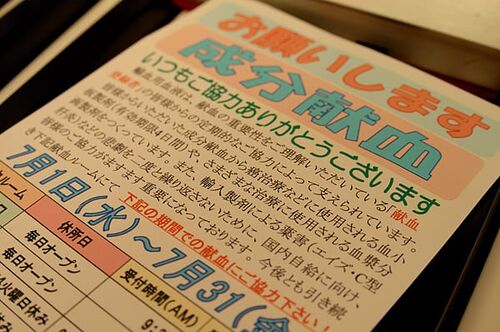 お願いします
成分献血
いつもご協力ありがとうございます
輸血や血液は、献血の重要性をご理解いただいている「献血
登録者」の皆様からの定期的なご協力によって支えられています。
皆様からいただいた成分献血から癌治療などに使用される血小
板製剤(有効期限4日間)や、さまざまな治療に使用される血漿分
画製剤をつくっています。また、輸入製剤による薬害(エイズ・C型
肝炎)などの悲劇を二度と繰り返さないために、国内自給に向け、
皆様のご協力がますます重要になっております。今後とも引き続
き下記献血ルームにて、下記の期間での献血にご協力下さい!
7月1日(水)~7月31(金
ルーム
休診日
受付時間(AM)
毎日オープン
毎日オープン
火曜日休み
休み
9: